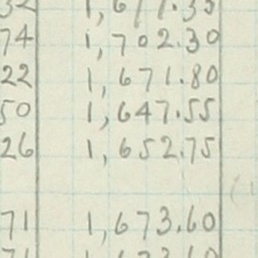 74 1,702.30
22 1,671.80
50 1,647.55
26 1,652.75
71 1,673.60